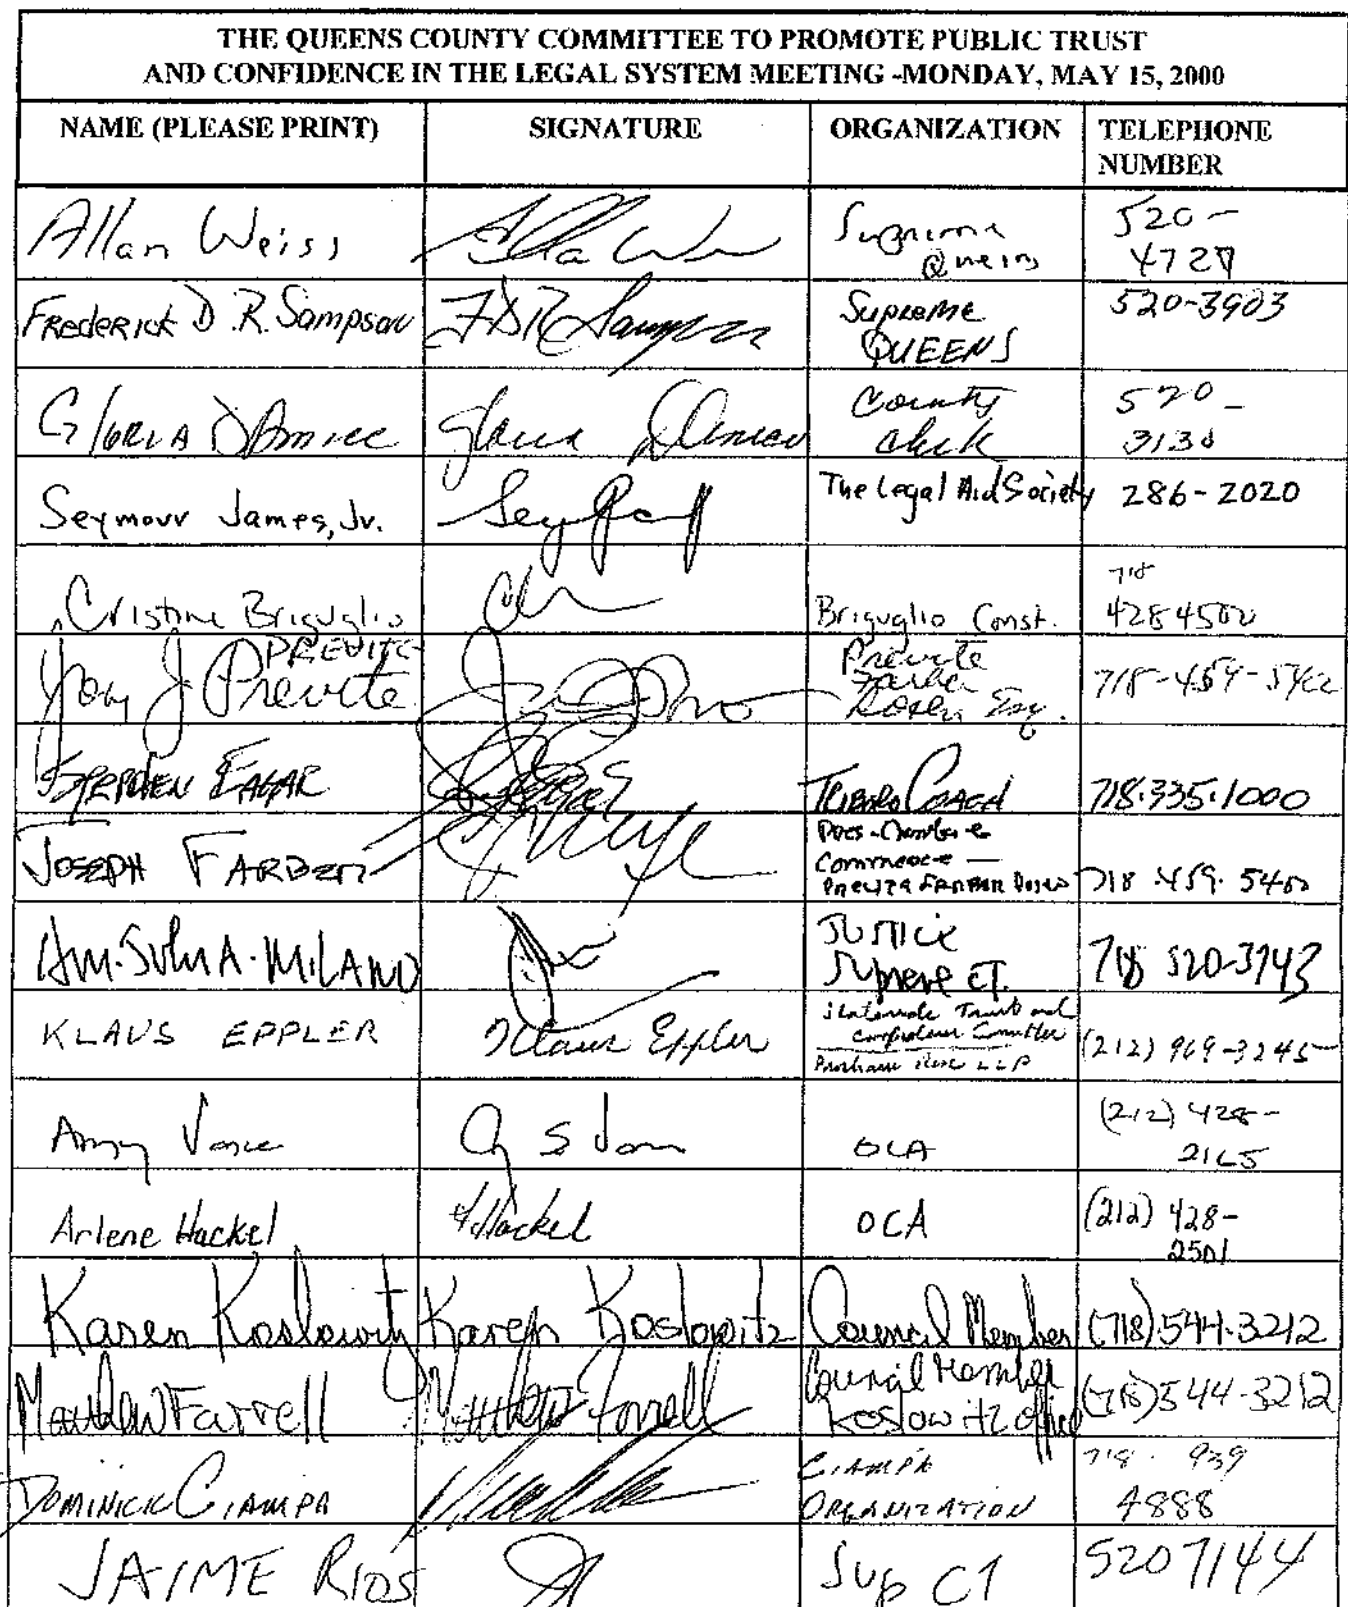 THE QUEENS COUNTY COMMITTEE TO PROMOTE PUBLIC TRUST
AND CONFIDENCE IN THE LEGAL SYSTEM MEETING -MONDAY, MAY 15, 2000
NAME (PLEASE PRINT) SIGNATURE ORGANIZATION TELEPHONE
NUMBER
Allan Weiss Supreme 520-
Queens
Frederick D.R. Sampson FDR Sampson Supreme 520-3903
QUEENS
Gloria D'Amico Gloria D'Amico County 520-
Clerk 3130
Seymour James, Jr. The Legal Aid Society 286-2020
Cristine Briguglio Briguglio Const. 718
428 4500
PREVITE Previte
Previte Farber
Rosen Esq.
STEPHEN TRIBORO COACH 718.335.1000
JOSEPH FARBER Pres-Chamber
Commerce —
718.459.5400
A. MILANO JUSTICE
Supreme CT. 718 520-3743
KLAUS EPPLER Klaus Eppler Statewide Trust and
Confidence Committee (212) 969-3245
Proskauer Rose LLP
Amy Vance OCA (212) 428-
2165
Arlene Hackel AHackel OCA (212) 428-
2501
Karen Koslowitz Karen Koslowitz Council Member (718) 544-3212
Matthew Farrell Matthew Farrell Council Member (718) 544-3212
Koslowitz office
DOMINICK CIAMPA CIAMPA 718. 939
ORGANIZATION 4888
JAIME RIOS Sup CT 520 7144